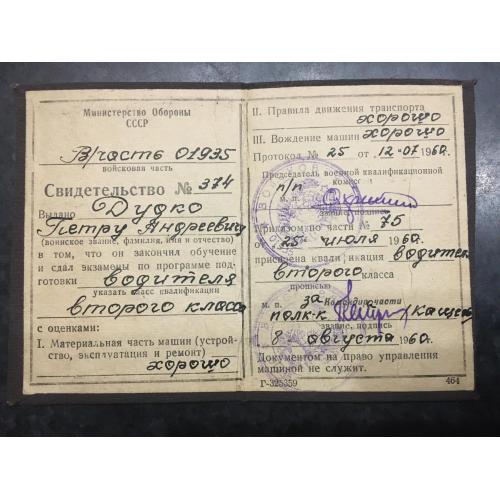 Министерство Обороны
СССР
В/часть 01935
войсковая часть
Свидетельство № 374
Выдано Дудко
Петру Андреевичу
(воинское звание, фамилия, имя и отчество)
в том, что он закончил обучение
и сдал экзамены по программе под-
готовки водителя
указать класс квалификации
второго класса
с оценками:
I. Материальная часть машин (устрой-
ство, эксплуатация и ремонт)
хорошо
II. Правила движения транспорта
хорошо
III. Вождение машин хорошо
Протокол № 25 от 12-07 1960.
Председатель военной квалификационной
комис
п/п
м. п.
звание, подпись
Приказом по части № 75
от 25 июля 1960.
присвоена квалификация водителя
второго класса
прописью
м. п. за Командир части
полк-к
звание, подпись
8 августа 1960.
Документом на право управления
машиной не служит.
Г-325359 464